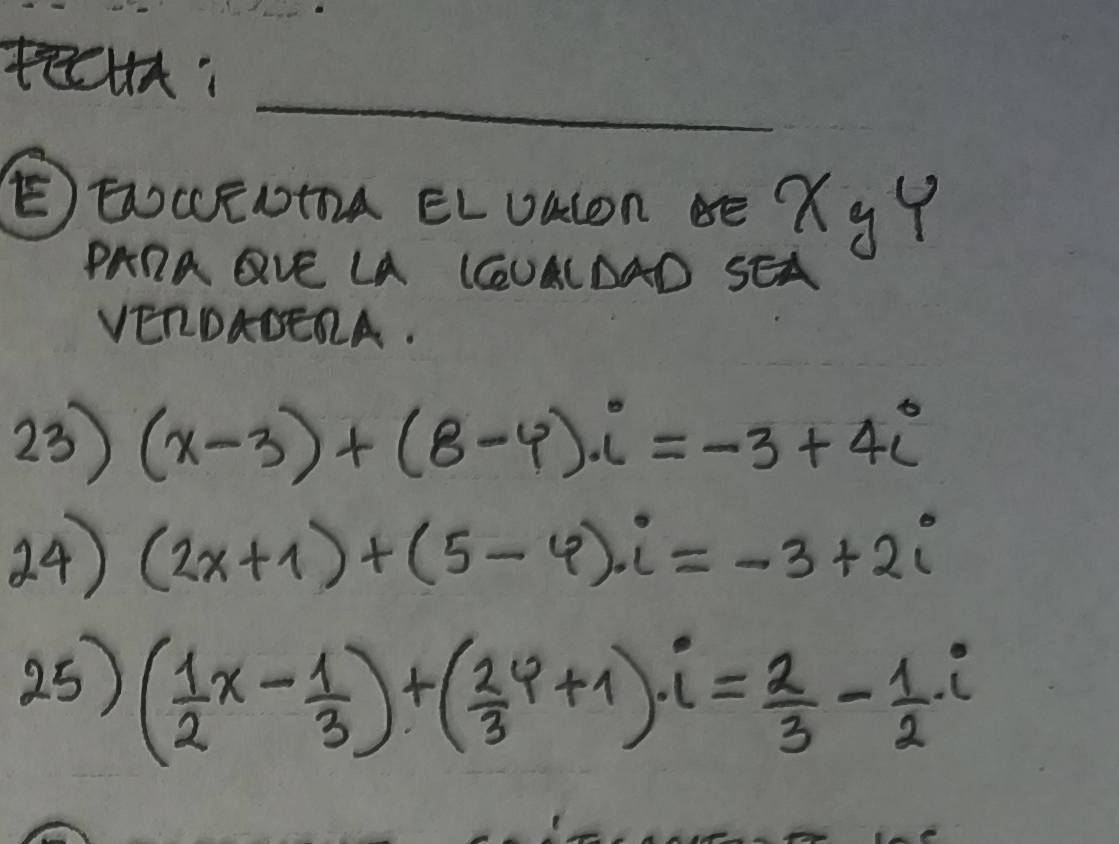 FECHA: ________
(E) ENCUENTRA EL VALOR DE X y Y
PARA QUE LA IGUALDAD SEA
VERDADERA.
23) (x-3)+(8-y).i=-3+4i
24) (2x+1)+(5-y).i=-3+2i
25) (1/2 x - 1/3)+(2/3 y+1).i = 2/3 - 1/2 .i